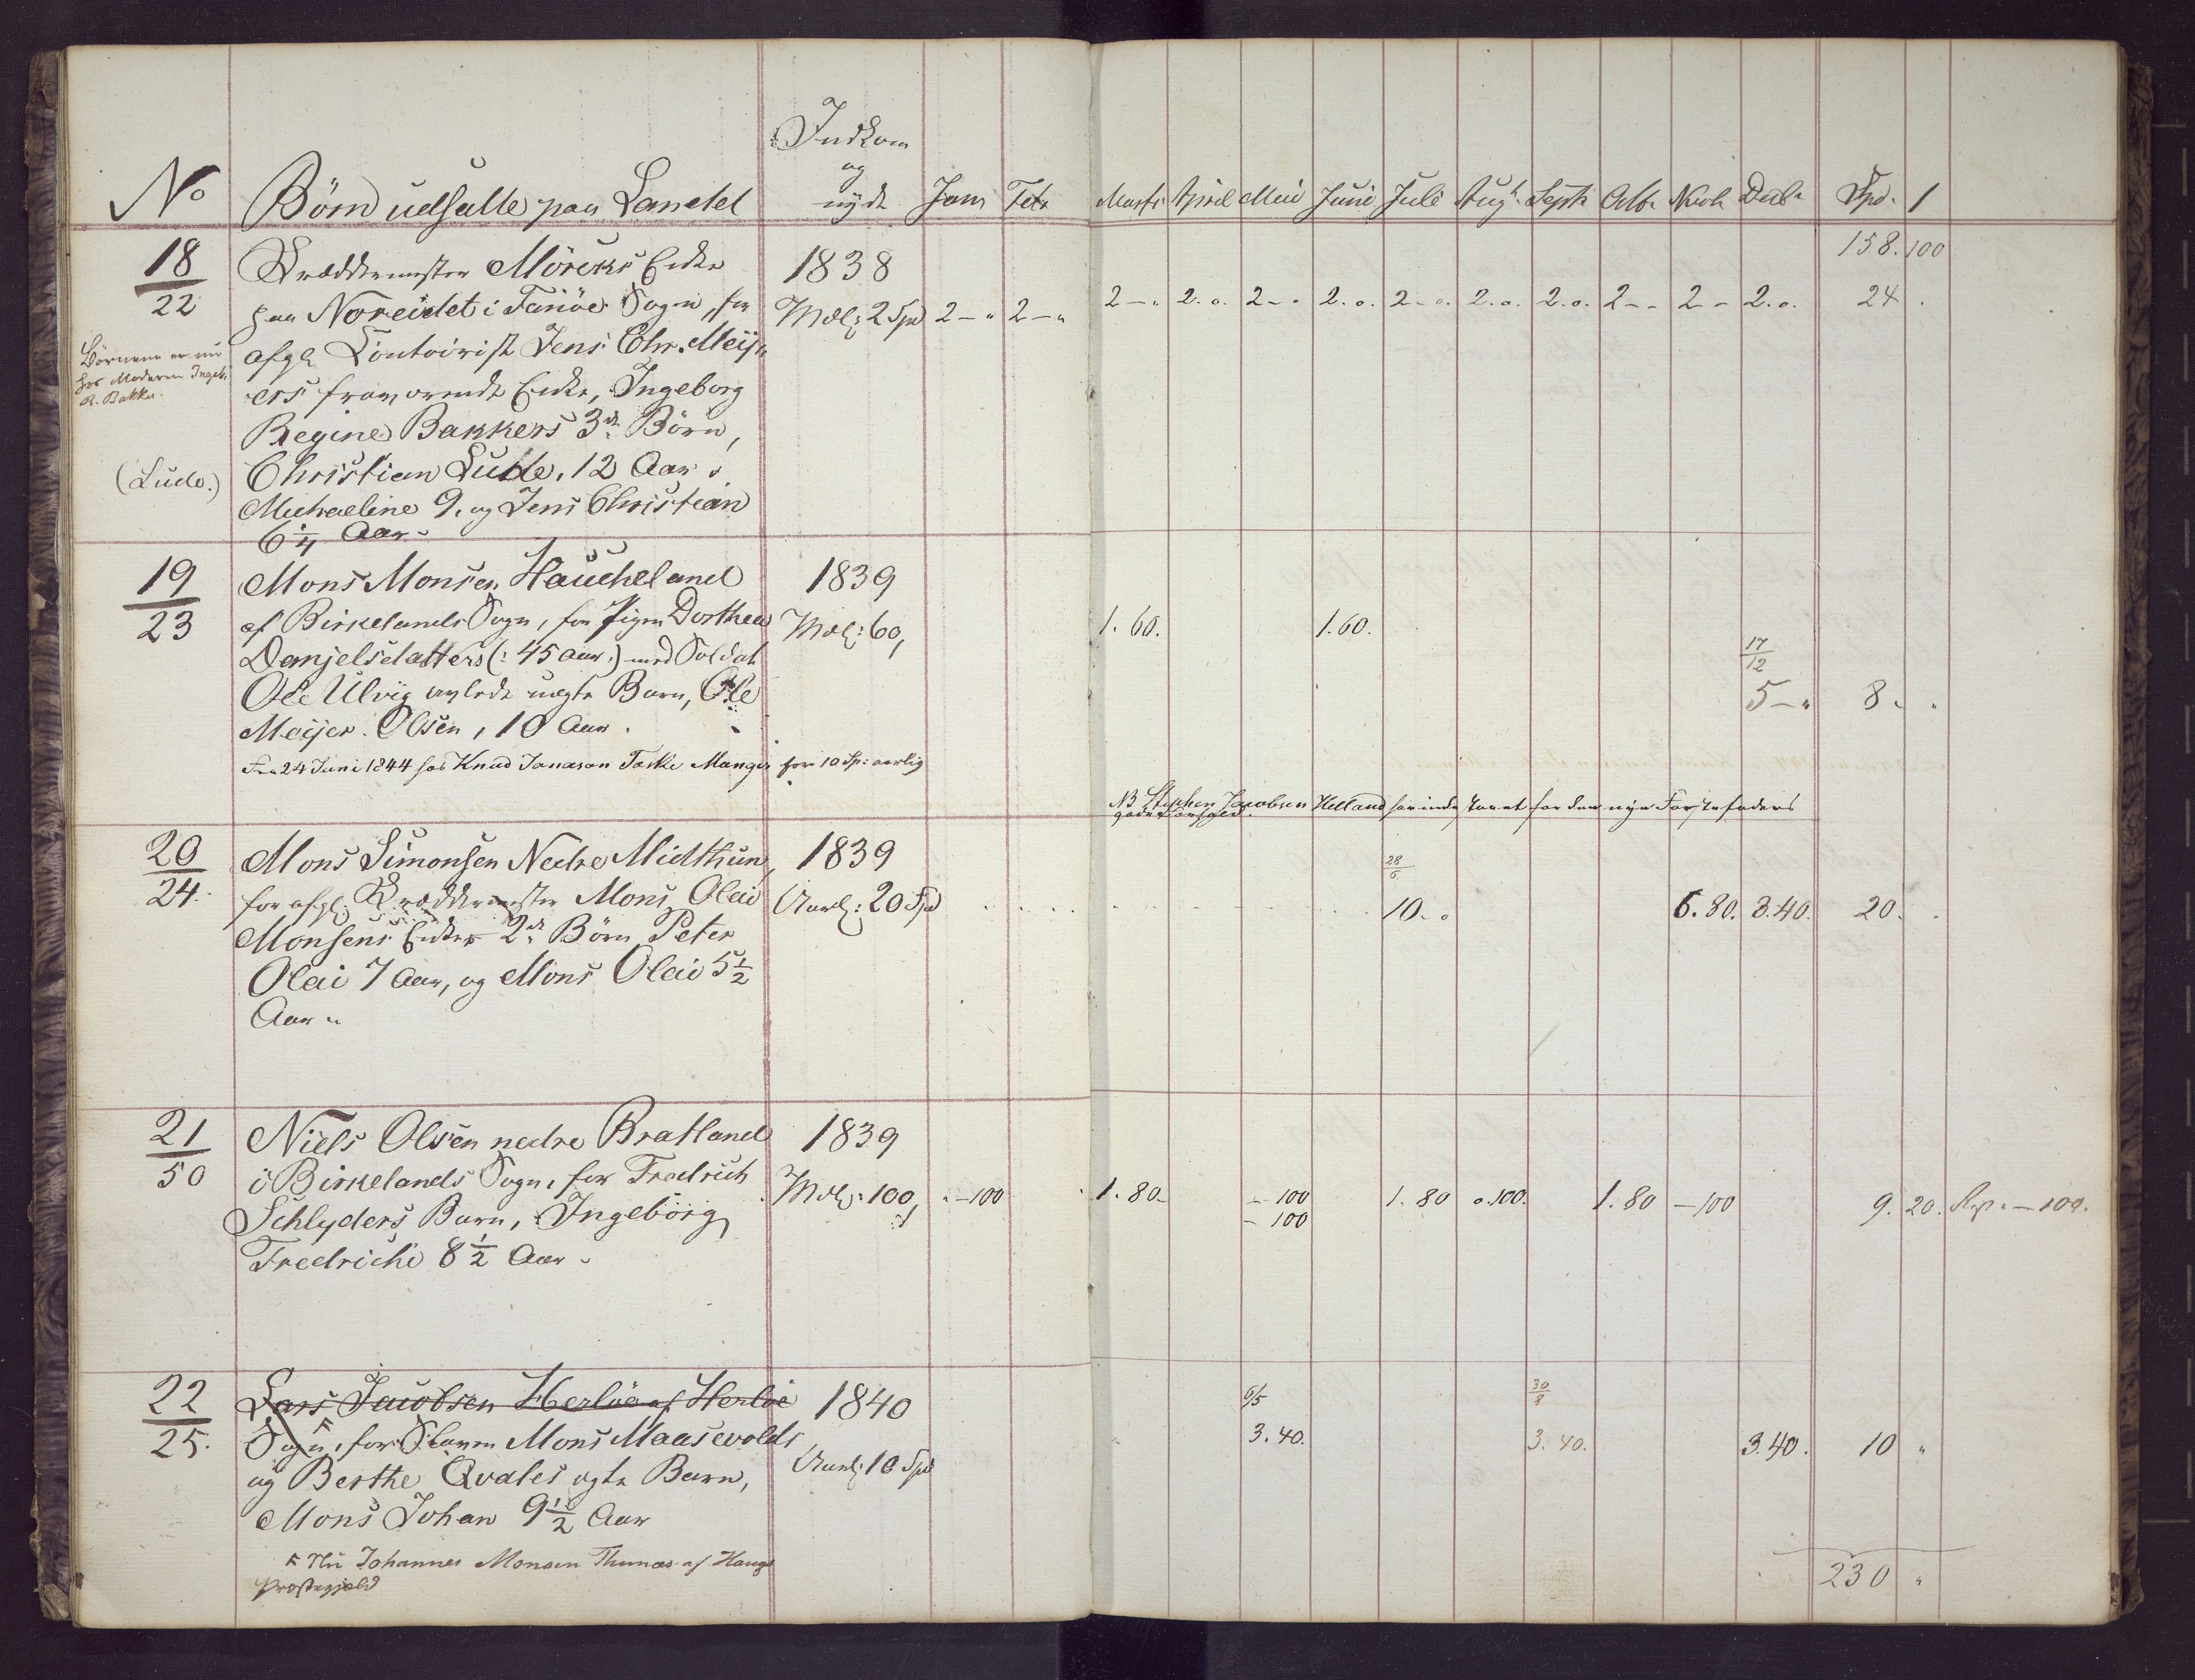 Indkom
og
No Börn udsatte paa Landet nÿde Jan Febr Marts April Mai Juni Juli Augt. Septb Octb. Novb Decbr Spd. 1
158. 100
18 1838
22 Mdl: 2 Spd 2 – " 2 – " 2 – " 2. o. 2 – " 2. o. 2 – o. 2. o. 2. o. 2 – – 2 – 2. o. 24 .
Skræddermester Mörcks Enke
paa Noreidet i Fanöe Sogn, for
afg. Contoirist Jens Chr. Meÿ-
ers Enke, Ingeborg
Regine Bakkers 3de Börn,
Christian Lude, 12 Aar,
Michaeline 9, og Jens Christian
6 1/4 Aar.
Börnene er nu
hos Moderen Ingeb.
R. Bakker.
(Ludv.)
19 Mons Monsen Haucheland 1839
23 af Birkelands Sogn, for Pigen Dorthea Mdl: 60, 1. 60. 1. 60.
Danjelsdatters (: 45 Aar.) med Soldat 17/12
Ole Ulvig avlede uægte Barn, Ole 5 – " 8 . "
Meÿer Olsen, 10 Aar.
Fra 24 Juni 1844 hos Knud Janason Taske Manger for 10 Sp: aarlig
NB Stephen Jacobsen Helland har indestaaet for den nye Fosterfaders
gode Forhold.
20 Mons Simonsen Nedre Midthun, 1839 28/6
24. for afg. Skræddermester Mons Olai Aarl: 20 Spd 10. o 6. 80. 3. 40. 20. .
Monsens Enkes 2de Börn Peter
Olai 7 Aar, og Mons Olai 5 1/2
Aar "
21 Niels Olsen nedre Bratland 1839
50 i Birkelands Sogn, for Fredrich Mdl: 100, " – 100 1. 80 – – 100 1. 80 o. 100. 1. 80 – 100 9. 20. Rp. " – 100.
Schlyders Barn, Ingebörg – 100
Fredriche 8 1/2 Aar.
22 Lars Jacobsen Herlöe af Herlöe 1840 6/5 30/8
25. Sogn, for Slaven Mons Maasevolds Aarl: 10 Spd 3. 40. 3. 40. 3. 40. 10 "
og Berthe Qvales ægte Barn,
Mons Johan 9 1/2 Aar
Nu Johannes Monsen Thunæs af Haugs
Præstegjeld
230 "